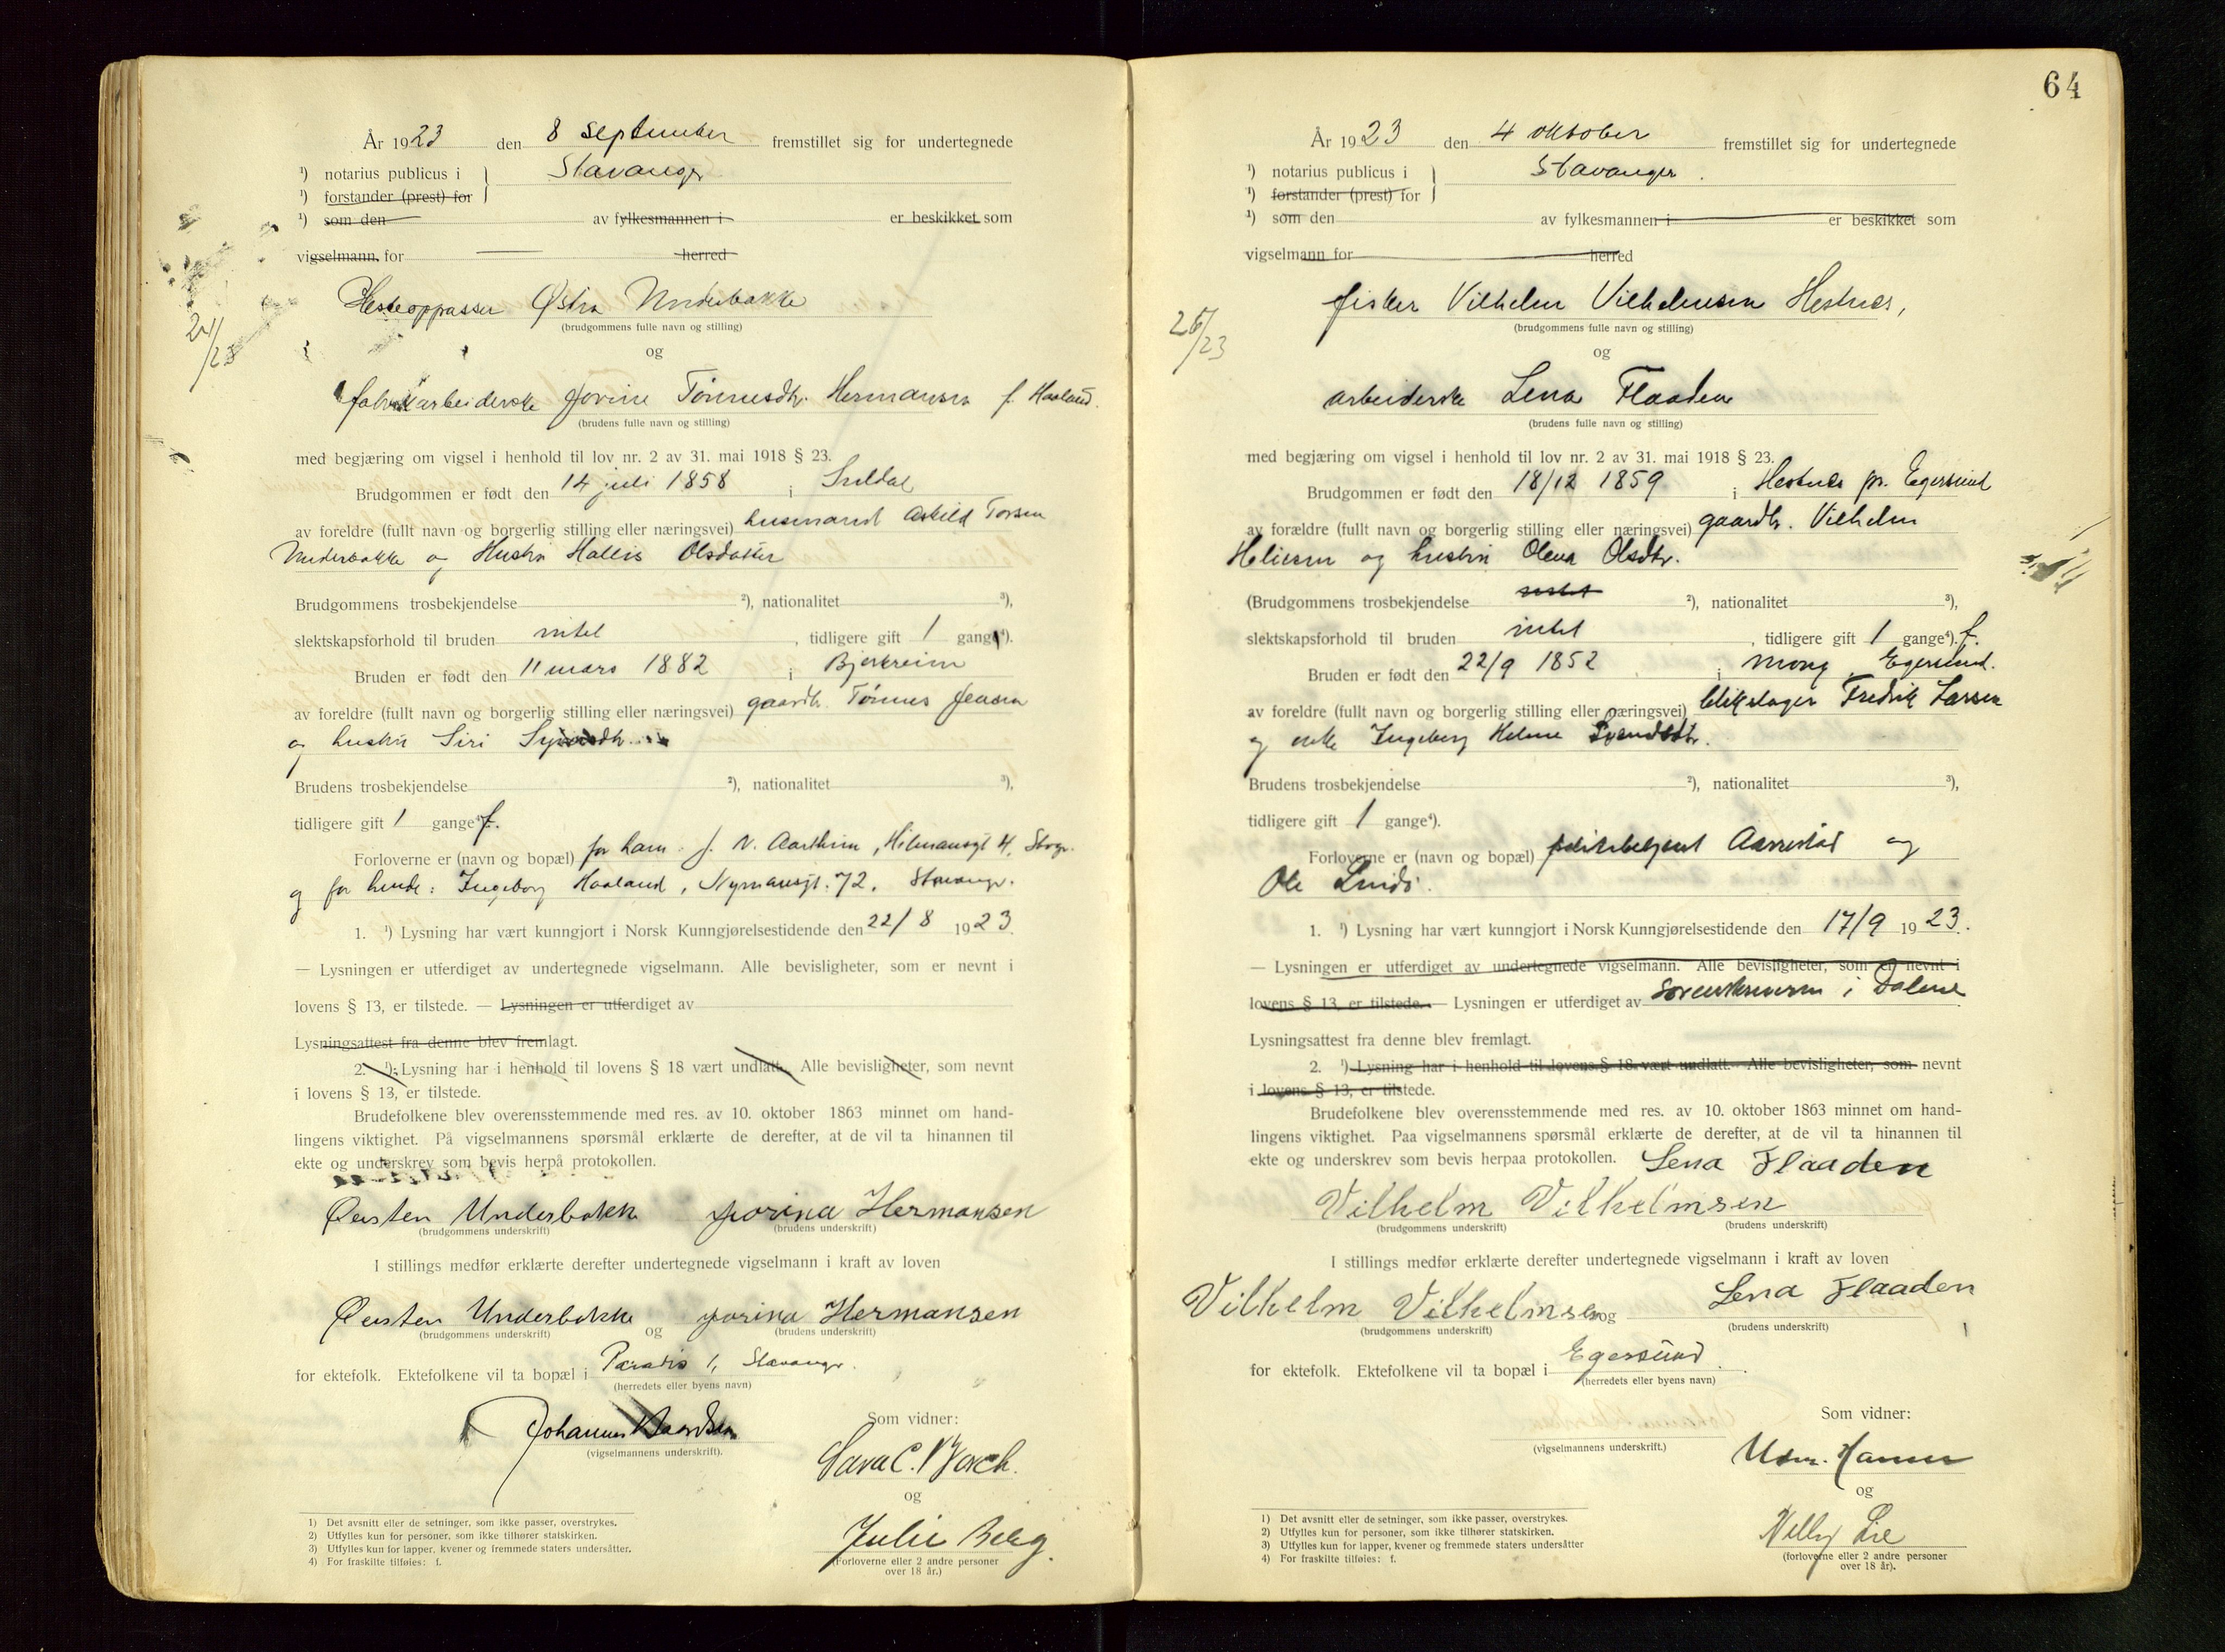 År 1923 den 8 september fremstillet sig for undertegnede
¹) notarius publicus i } Stavanger
¹) forstander (prest) for
¹) som den av fylkesmannen i er beskikket som
vigselmann for herred
24/23
Hesteoppasser Østen Underbakke
(brudgommens fulle navn og stilling)
og
fabrikarbeiderske Jorine Tønnesdtr. Hermansen f. Haaland.
(brudens fulle navn og stilling)
med begjæring om vigsel i henhold til lov nr. 2 av 31. mai 1918 § 23.
Brudgommen er født den 14 juli 1858 i Suldal
av foreldre (fullt navn og borgerlig stilling eller næringsvei) husmand Askild Torsen
Underbakke og Hustru Hallis Olsdatter
Brudgommens trosbekjendelse ²), nationalitet ³),
slektskapsforhold til bruden intet, tidligere gift 1 gang⁴).
Bruden er født den 11 mars 1882 i Bjerkreim
av foreldre (fullt navn og borgerlig stilling eller næringsvei) gaardbr. Tønnes Jensen
og hustru Siri
Brudens trosbekjendelse ²), nationalitet ³),
tidligere gift 1 gange⁴) f.
Forloverne er (navn og bopæl) for ham: J. N. Aartheim, Hermansgt 4, Stvgr.
og for hende: Ingeborg Haaland, Nymansgt. 72, Stavanger.
1. ¹) Lysning har vært kunngjort i Norsk Kunngjørelsestidende den 22/8 1923.
— Lysningen er utferdiget av undertegnede vigselmann. Alle bevisligheter, som er nevnt i
lovens § 13, er tilstede. — Lysningen er utferdiget av
Lysningsattest fra denne blev fremlagt.
2. ¹) Lysning har i henhold til lovens § 18 vært undlatt. Alle bevisligheter, som nevnt
i lovens § 13, er tilstede.
Brudefolkene blev overensstemmende med res. av 10. oktober 1863 minnet om hand-
lingens viktighet. På vigselmannens spørsmål erklærte de derefter, at de vil ta hinannen til
ekte og underskrev som bevis herpå protokollen.
Østen Underbakke Jorina Hermansen
(brudgommens underskrift) (brudens underskrift)
I stillings medfør erklærte derefter undertegnede vigselmann i kraft av loven
Østen Underbakke og Jorina Hermansen
(brudgommens underskrift) (brudens underskrift)
for ektefolk. Ektefolkene vil ta bopæl i Paradis 1, Stavanger.
(herredets eller byens navn)
Johannes
(vigselmannens underskrift).
Som vidner:
Sara C.
og
Julie Berg.
(Forloverne eller 2 andre personer
over 18 år.)
1) Det avsnitt eller de setninger, som ikke passer, overstrykes.
2) Utfylles kun for personer, som ikke tilhører statskirken.
3) Utfylles kun for lapper, kvener og fremmede staters undersåtter.
4) For fraskilte tilføies: f.
64
År 1923 den 4 oktober fremstillet sig for undertegnede
¹) notarius publicus i } Stavanger.
¹) forstander (prest) for
¹) som den av fylkesmannen i er beskikket som
vigselmann for herred
26/23
fisker Vilhelm Vilhelmsen Hestnes,
(brudgommens fulle navn og stilling)
og
arbeiderske Lena Flaaden
(brudens fulle navn og stilling)
med begjæring om vigsel i henhold til lov nr. 2 av 31. mai 1918 § 23.
Brudgommen er født den 18/12 1859 i Hestnes pr. Egersund
av forældre (fullt navn og borgerlig stilling eller næringsvei) gaardbr. Vilhelm
Heliesen og hustru Olena Olsdtr.
(Brudgommens trosbekjendelse intet ²), nationalitet ³),
slektskapsforhold til bruden intet, tidligere gift 1 gange⁴). f.
Bruden er født den 22/9 1852 i Mong Egersund.
av foreldre (fullt navn og borgerlig stilling eller næringsvei) blikslager Fredrik Larsen
og enke Ingeborg Helene Svendsdtr.
Brudens trosbekjendelse ²), nationalitet ³),
tidligere gift 1 gange⁴).
Forloverne er (navn og bopæl) politibetjent Aarrestad og
Ole Lindø.
1. ¹) Lysning har vært kunngjort i Norsk Kunngjørelsestidende den 17/9 1923.
— Lysningen er utferdiget av undertegnede vigselmann. Alle bevisligheter, som er nevnt i
lovens § 13, er tilstede. — Lysningen er utferdiget av Sorenskriveren i Dalene
Lysningsattest fra denne blev fremlagt.
2. ¹) Lysning har i henhold til lovens § 18 vært undlatt. Alle bevisligheter, som nevnt
i lovens § 13, er tilstede.
Brudefolkene blev overensstemmende med res. av 10. oktober 1863 minnet om hand-
lingens viktighet. Paa vigselmannens spørsmål erklærte de derefter, at de vil ta hinannen til
ekte og underskrev som bevis herpaa protokollen. Lena Flaaden
Vilhelm Vilhelmsen
(brudgommens underskrift) (brudens underskrift)
I stillings medfør erklærte derefter undertegnede vigselmann i kraft av loven
Vilhelm Vilhelmsen og Lena Flaaden
(brudgommens underskrift) (brudens underskrift)
for ektefolk. Ektefolkene vil ta bopæl i Egersund.
(herredets eller byens navn)
(vigselmannens underskrift.)
Som vidner:
og
Nelly Lie
(forloverne eller 2 andre personer
over 18 år).
1) Det avsnitt eller de setninger, som ikke passer, overstrykes.
2) Utfylles kun for personer, som ikke tilhører statskirken.
3) Utfylles kun for lapper, kvener og fremmede staters undersåtter
4) For fraskilte tilføies: f.